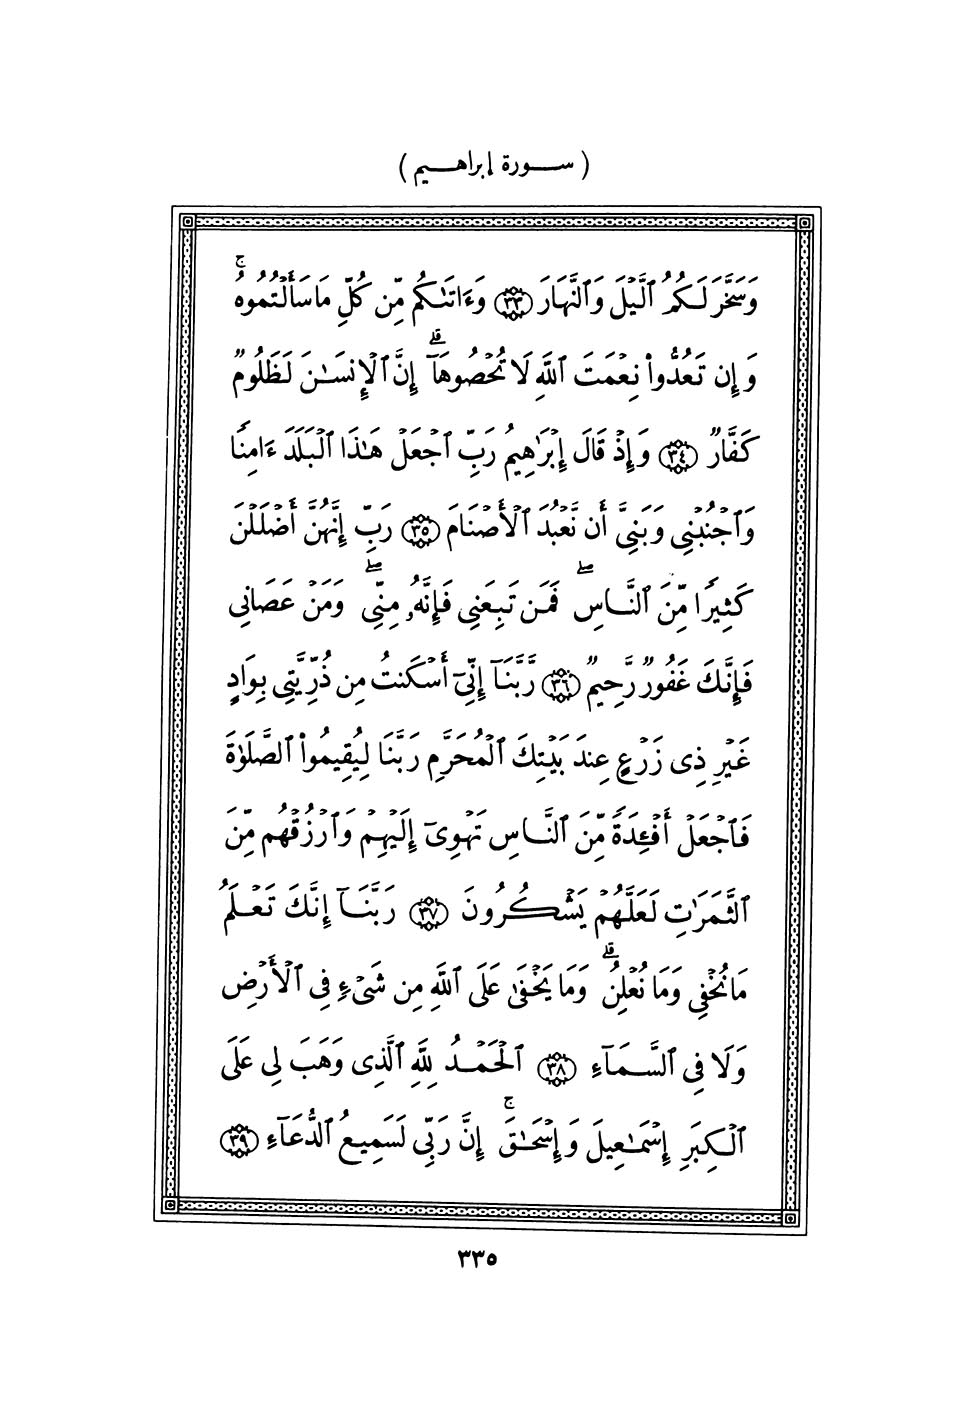 ( سورة إبراهيم )
وَسَخَّرَ لَكُمُ ٱلَّيْلَ وَٱلنَّهَارَ ٣٣ وَءَاتَىٰكُم مِّن كُلِّ مَا سَأَلْتُمُوهُ ۚ
وَإِن تَعُدُّوا۟ نِعْمَتَ ٱللَّهِ لَا تُحْصُوهَآ ۗ إِنَّ ٱلْإِنسَـٰنَ لَظَلُومٌ
كَفَّارٌ ٣٤ وَإِذْ قَالَ إِبْرَٰهِيمُ رَبِّ ٱجْعَلْ هَـٰذَا ٱلْبَلَدَ ءَامِنًا
وَٱجْنُبْنِى وَبَنِىَّ أَن نَّعْبُدَ ٱلْأَصْنَامَ ٣٥ رَبِّ إِنَّهُنَّ أَضْلَلْنَ
كَثِيرًا مِّنَ ٱلنَّاسِ ۖ فَمَن تَبِعَنِى فَإِنَّهُۥ مِنِّى ۖ وَمَنْ عَصَانِى
فَإِنَّكَ غَفُورٌ رَّحِيمٌ ٣٦ رَّبَّنَآ إِنِّىٓ أَسْكَنتُ مِن ذُرِّيَّتِى بِوَادٍ
غَيْرِ ذِى زَرْعٍ عِندَ بَيْتِكَ ٱلْمُحَرَّمِ رَبَّنَا لِيُقِيمُوا۟ ٱلصَّلَوٰةَ
فَٱجْعَلْ أَفْـِٔدَةً مِّنَ ٱلنَّاسِ تَهْوِىٓ إِلَيْهِمْ وَٱرْزُقْهُم مِّنَ
ٱلثَّمَرَٰتِ لَعَلَّهُمْ يَشْكُرُونَ ٣٧ رَبَّنَآ إِنَّكَ تَعْلَمُ
مَا نُخْفِى وَمَا نُعْلِنُ ۗ وَمَا يَخْفَىٰ عَلَى ٱللَّهِ مِن شَىْءٍ فِى ٱلْأَرْضِ
وَلَا فِى ٱلسَّمَآءِ ٣٨ ٱلْحَمْدُ لِلَّهِ ٱلَّذِى وَهَبَ لِى عَلَى
ٱلْكِبَرِ إِسْمَـٰعِيلَ وَإِسْحَـٰقَ ۚ إِنَّ رَبِّى لَسَمِيعُ ٱلدُّعَآءِ ٣٩
٣٣٥